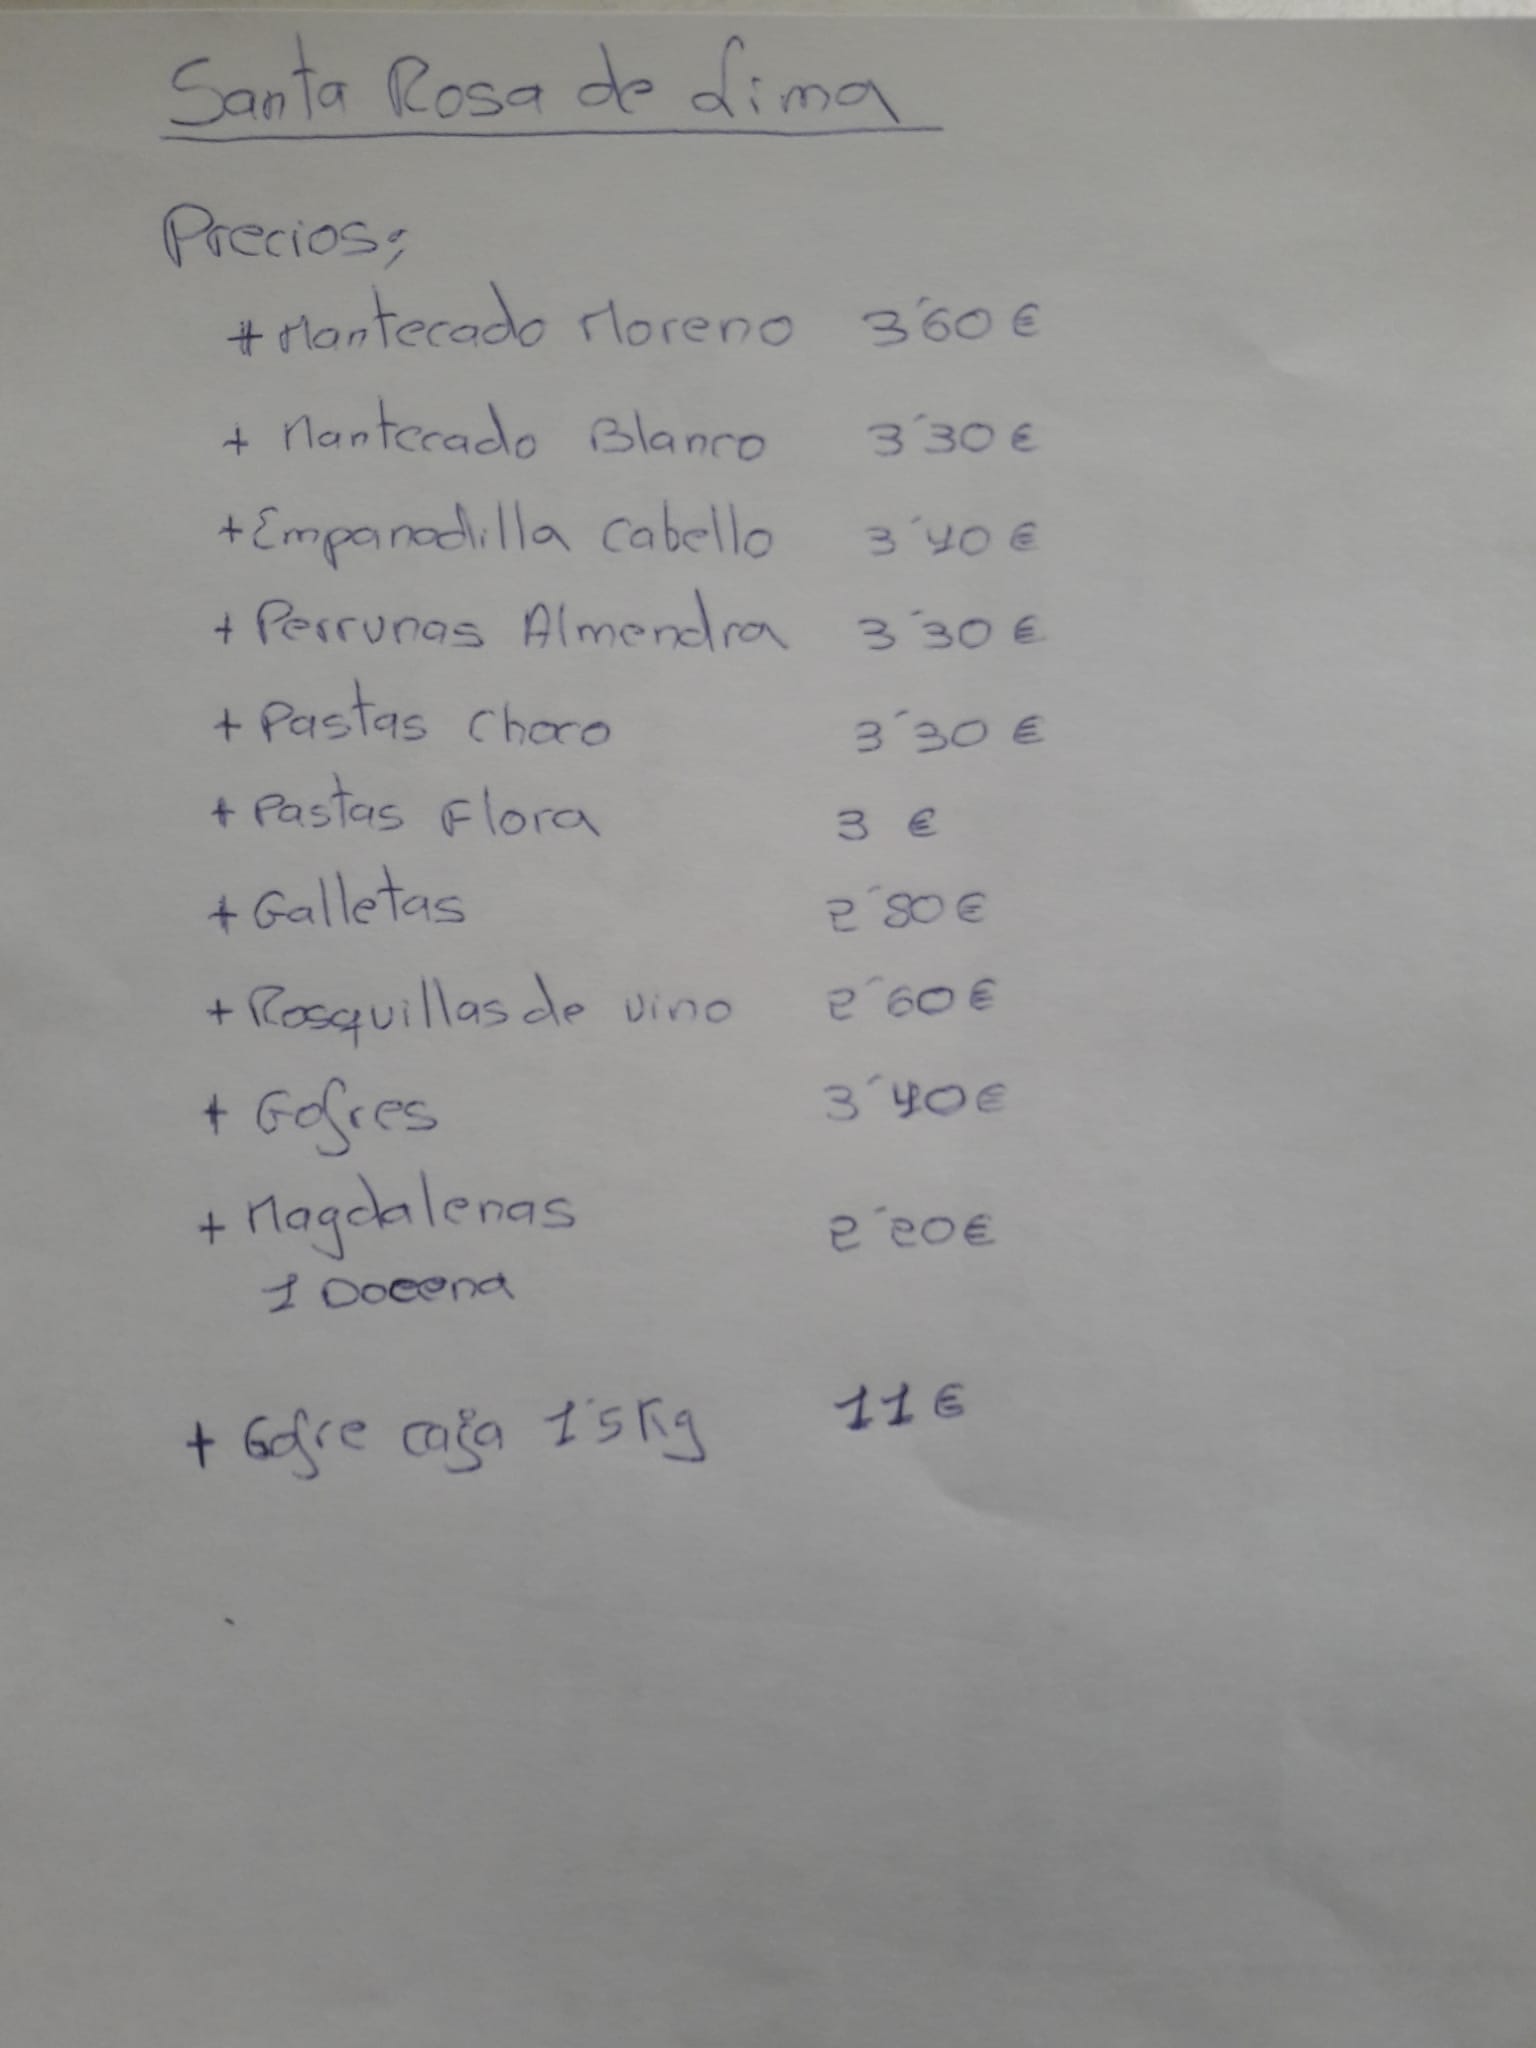 Santa Rosa de Lima
Precios;
+ Mantecado Moreno 3´60 €
+ Mantecado Blanco 3´30 €
+ Empanadilla Cabello 3´40 €
+ Perrunas Almendra 3´30 €
+ Pastas Choco 3´30 €
+ Pastas Flora 3 €
+ Galletas 2´80 €
+ Rosquillas de vino 2´60 €
+ Gofres 3´40 €
+ Magdalenas 2´20 €
1 Docena
+ Gofre caja 1´5 Kg 11 €